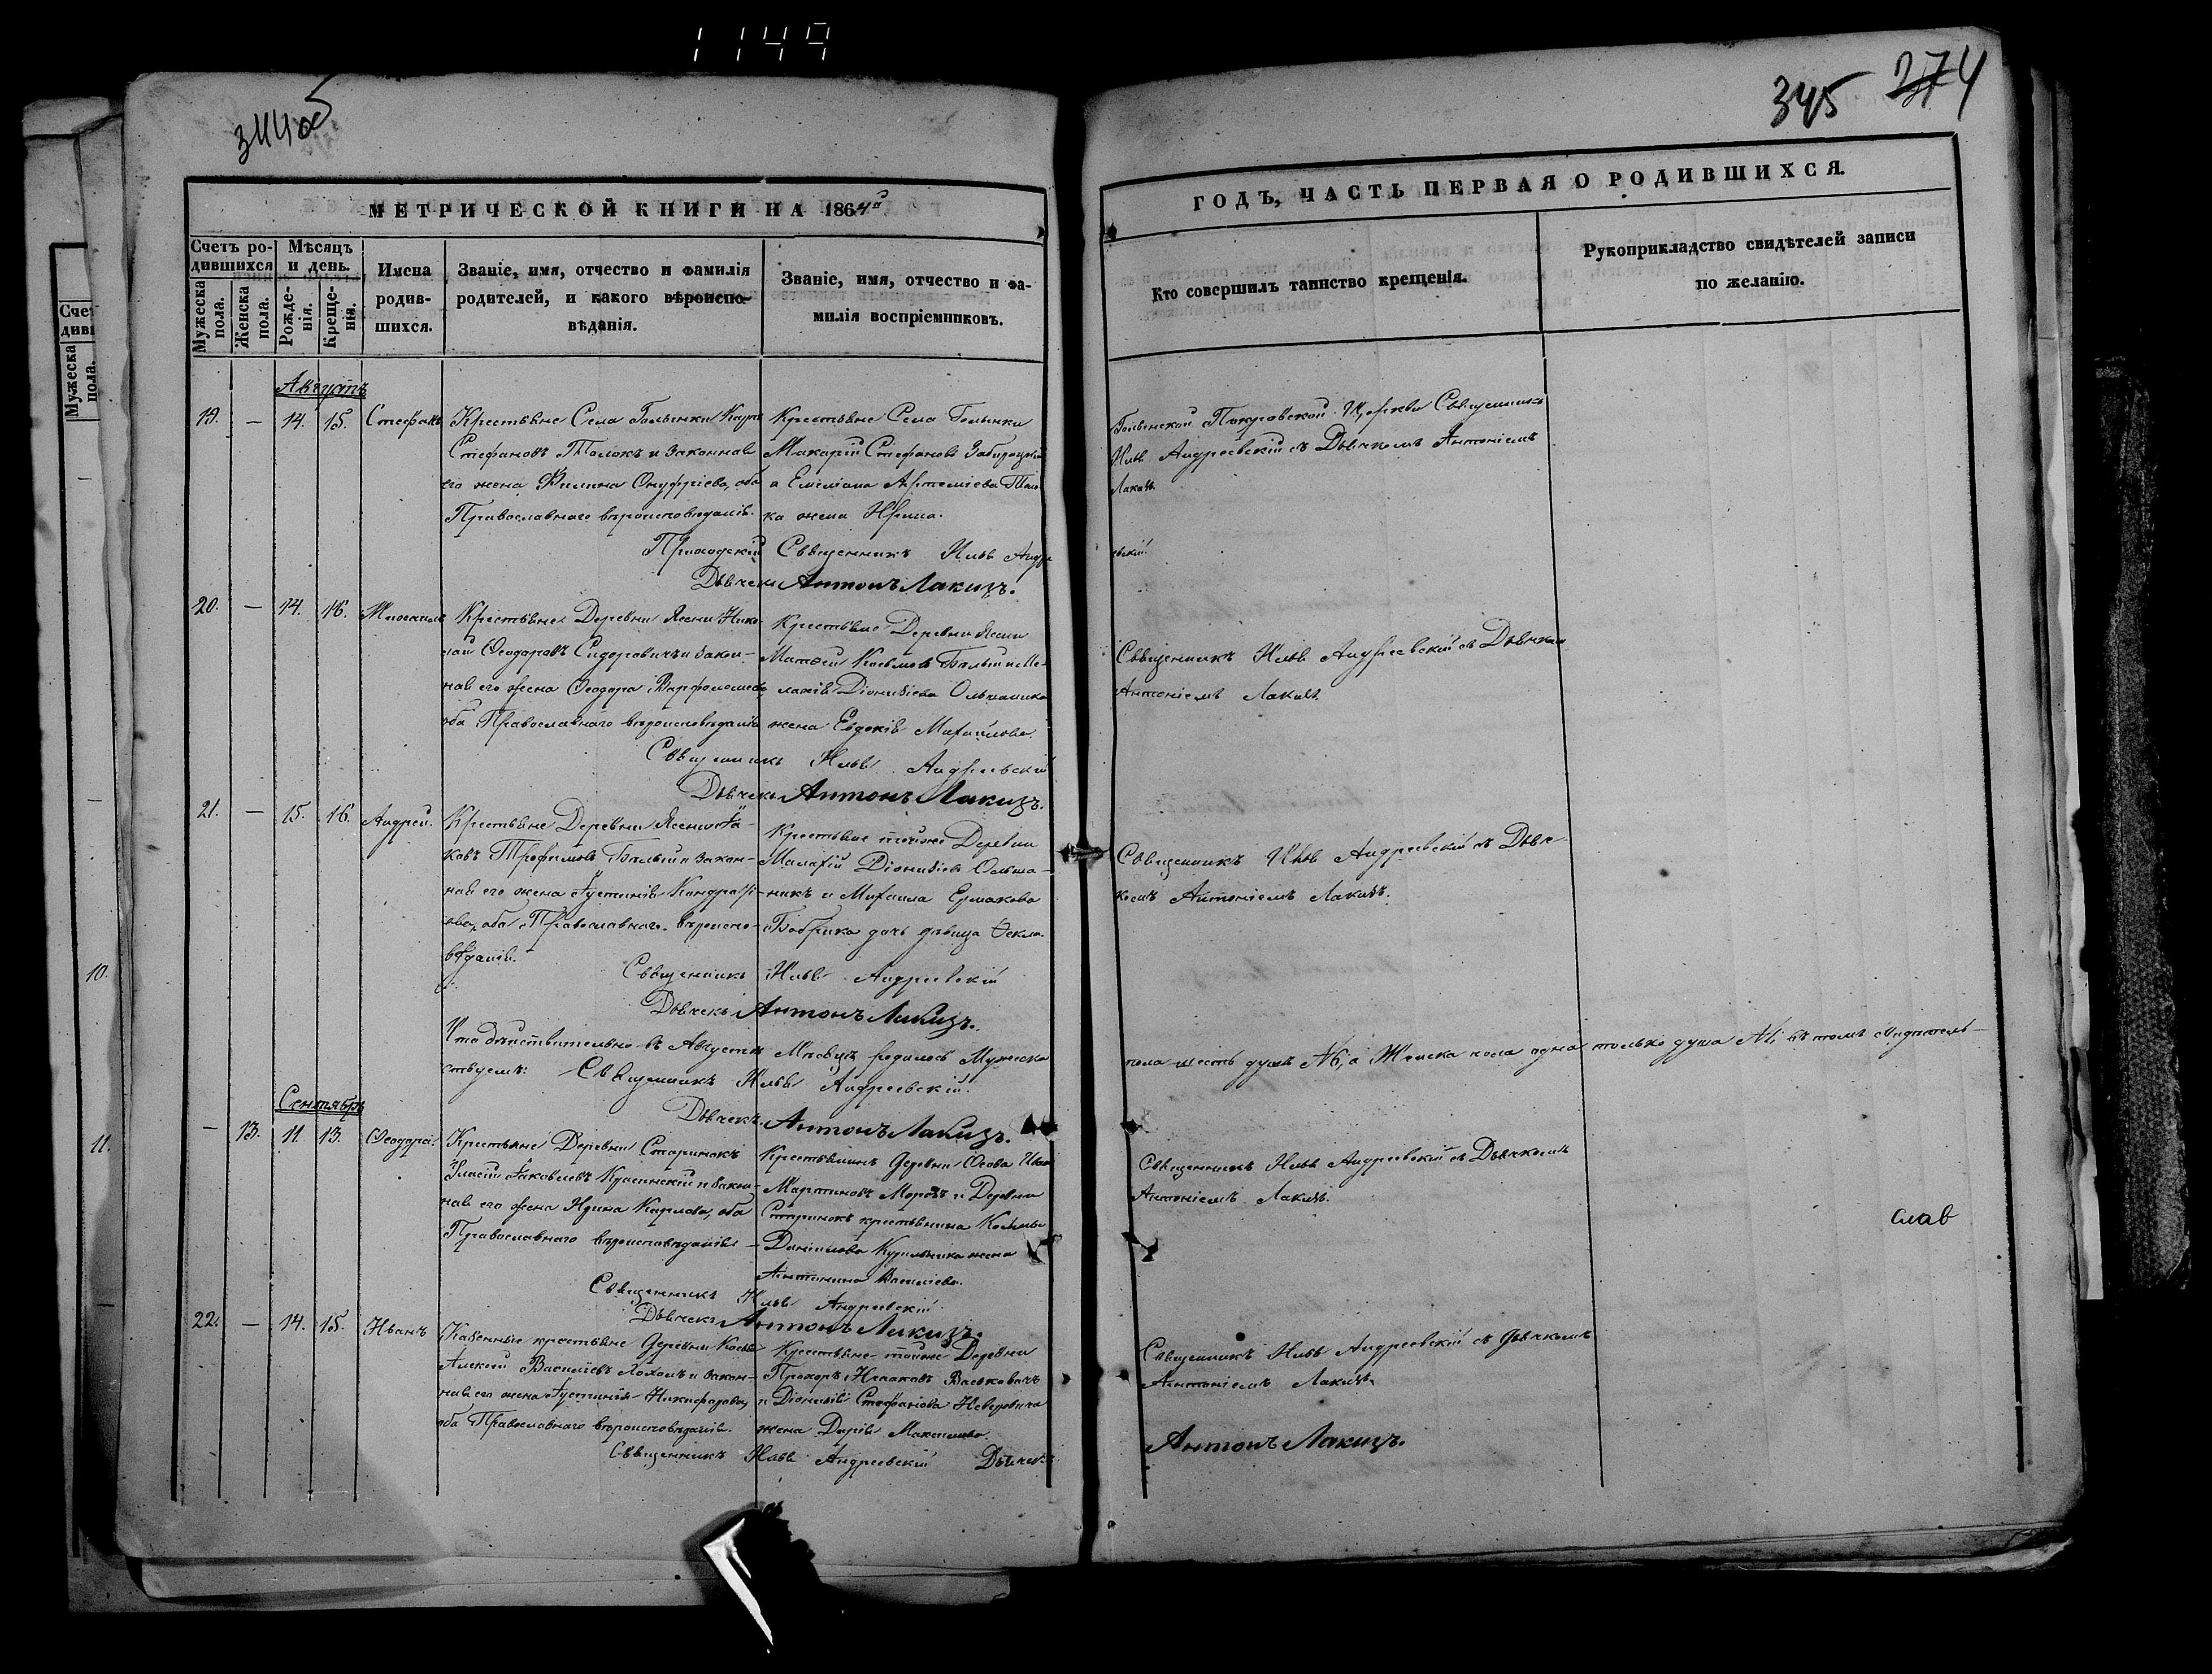 1149
344об
345 274
МЕТРИЧЕСКОЙ КНИГИ НА 1864й
ГОДЪ, ЧАСТЬ ПЕРВАЯ О РОДИВШИХСЯ.
Счетъ ро-
дившихся
Мужеска
пола.
Женска
пола.
Мѣсяцъ
и день.
Рожде-
нія.
Креще-
нія.
Имена
родив-
шихся.
Званіе, имя, отчество и фамилія
родителей, и какого вѣроиспо-
вѣданія.
Званіе, имя, отчество и фа-
милія воспріемниковъ.
Кто совершилъ таинство крещенія.
Рукоприкладство свидѣтелей записи
по желанію.
Августъ
19. — 14. 15. Стефанъ
Крестьяне Села Голынки
Стефановъ Толокъ и законная
его жена Онуфріева, оба
Православнаго вѣроисповѣданія.
Крестьяне Села Голынки
Макарій Стефановъ
и Емеліана Артеміева Толо-
ка жена Ирина.
Голынской Покровской Церкви Священникъ
Илья Андреевскій съ Дьячкомъ Антоніемъ
Лакизъ.
Приходскій Священникъ Илья Андре
евскій
Дьячекъ Антонъ Лакизъ.
20. — 14. 16.
Крестьяне Деревни Ясени Нико-
лай Ѳеодоровъ Сидоровичъ и закон-
ная его жена Ѳеодора Варфоломеева,
оба Православнаго вѣроисповѣданія
Крестьяне Деревни Ясени
Матѳей Козьмовъ
Діонизіева Ольшаника
жена Евдокія Михайлова.
Священникъ Илья Андреевскій съ Дьячкомъ
Антоніемъ Лакизъ.
Священникъ Илья Андреевскій
Дьячекъ Антонъ Лакизъ.
21. — 15. 16. Андрей.
Крестьяне Деревни Ясени Іа-
ковъ Трофимовъ и закон-
ная его жена Іустинія Кондрать-
ева, оба Православнаго вѣроиспо-
вѣданія.
Крестьяне тойже Деревни
Малахій Діонизіевъ Ольша-
никъ и Михаила Ермакова
Бобрика дочь дѣвица Ѳекла.
Священникъ Илья Андреевскій съ Дьяч-
комъ Антоніемъ Лакизъ.
Священникъ Илья Андреевскій
Дьячекъ Антонъ Лакизъ.
Что дѣйствительно въ Августѣ Мѣсяцѣ родилось Мужеска
пола шесть душъ №6, а Женска пола одна только душа №1, въ томъ свидѣтель-
ствуемъ: Священникъ Илья Андреевскій.
Дьячекъ Антонъ Лакизъ.
Сентябрь
— 13. 11. 13. Ѳеодора.
Крестьяне Деревни Старинокъ
Власій Іаковлевъ и закон-
ная его жена Ирина Карпова, оба
Православнаго вѣроисповѣданія
Крестьянинъ Деревни Осова Иванъ
Мартиновъ Морозъ и Деревни
Старинокъ крестьянина Козьмы
Даніилова Курильчика жена
Антонина Василіева.
Священникъ Илья Андреевскій съ Дьячкомъ
Антоніемъ Лакизъ.
слав
Священникъ Илья Андреевскій
Дьячекъ Антонъ Лакизъ.
22. — 14. 15. Иванъ
Казенные крестьяне Деревни
Алексій Василіевъ и закон-
ная его жена Іустинія Никифорова,
оба Православнаго вѣроисповѣданія.
Крестьяне тойже Деревни
Прохоръ Исааковъ Васьковичъ
и Діонизія Стефанова
жена Дарія Максимова.
Священникъ Илья Андреевскій съ дьячкомъ
Антоніемъ Лакизъ.
Священникъ Илья Андреевскій Дьячекъ
Антонъ Лакизъ.
10.
11.